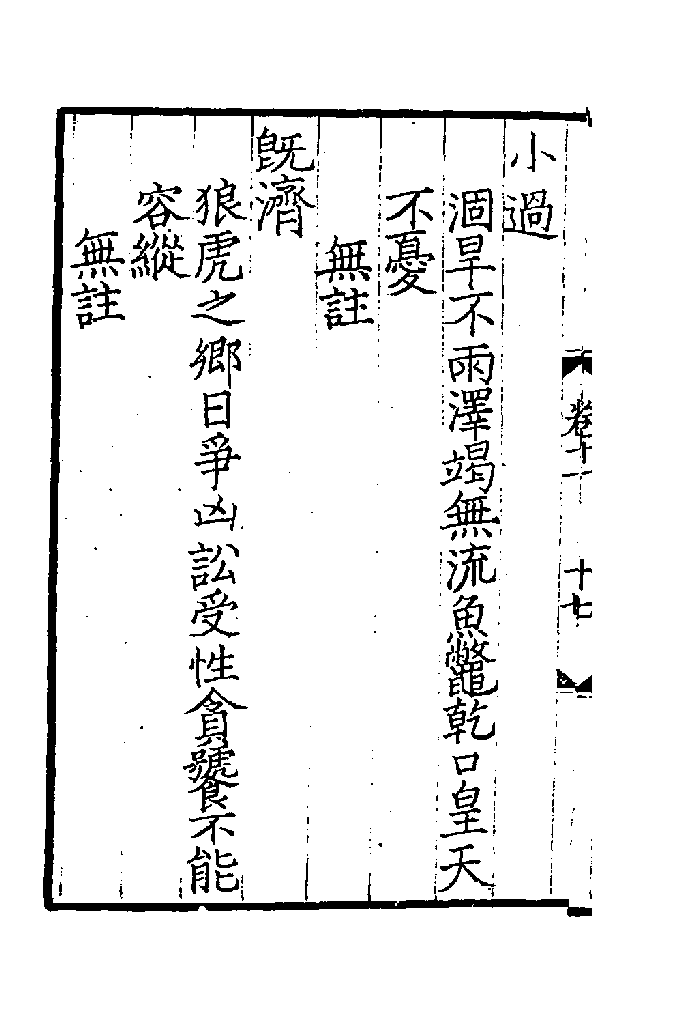 小過
涸旱不雨澤竭無流魚鼈乾口皇天
不憂
無註
旣濟
狼虎之鄉日爭凶訟受性貪饕不能
容縱
無註
卷十一
十七